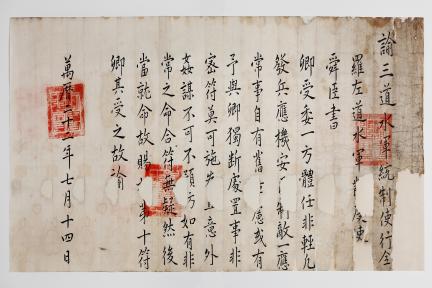 諭三道水軍統制使行全
羅左道水軍使
舜臣書
卿受委一方體任非輕凡
發兵應機安制敵一應
常事自有舊慮或有
予與卿獨斷處置事非
密符莫可施意外
姦謀不可不預防如有非
常之命合符無疑然後
當就命故賜第十符
卿其受之故諭
萬曆二十一年七月十四日